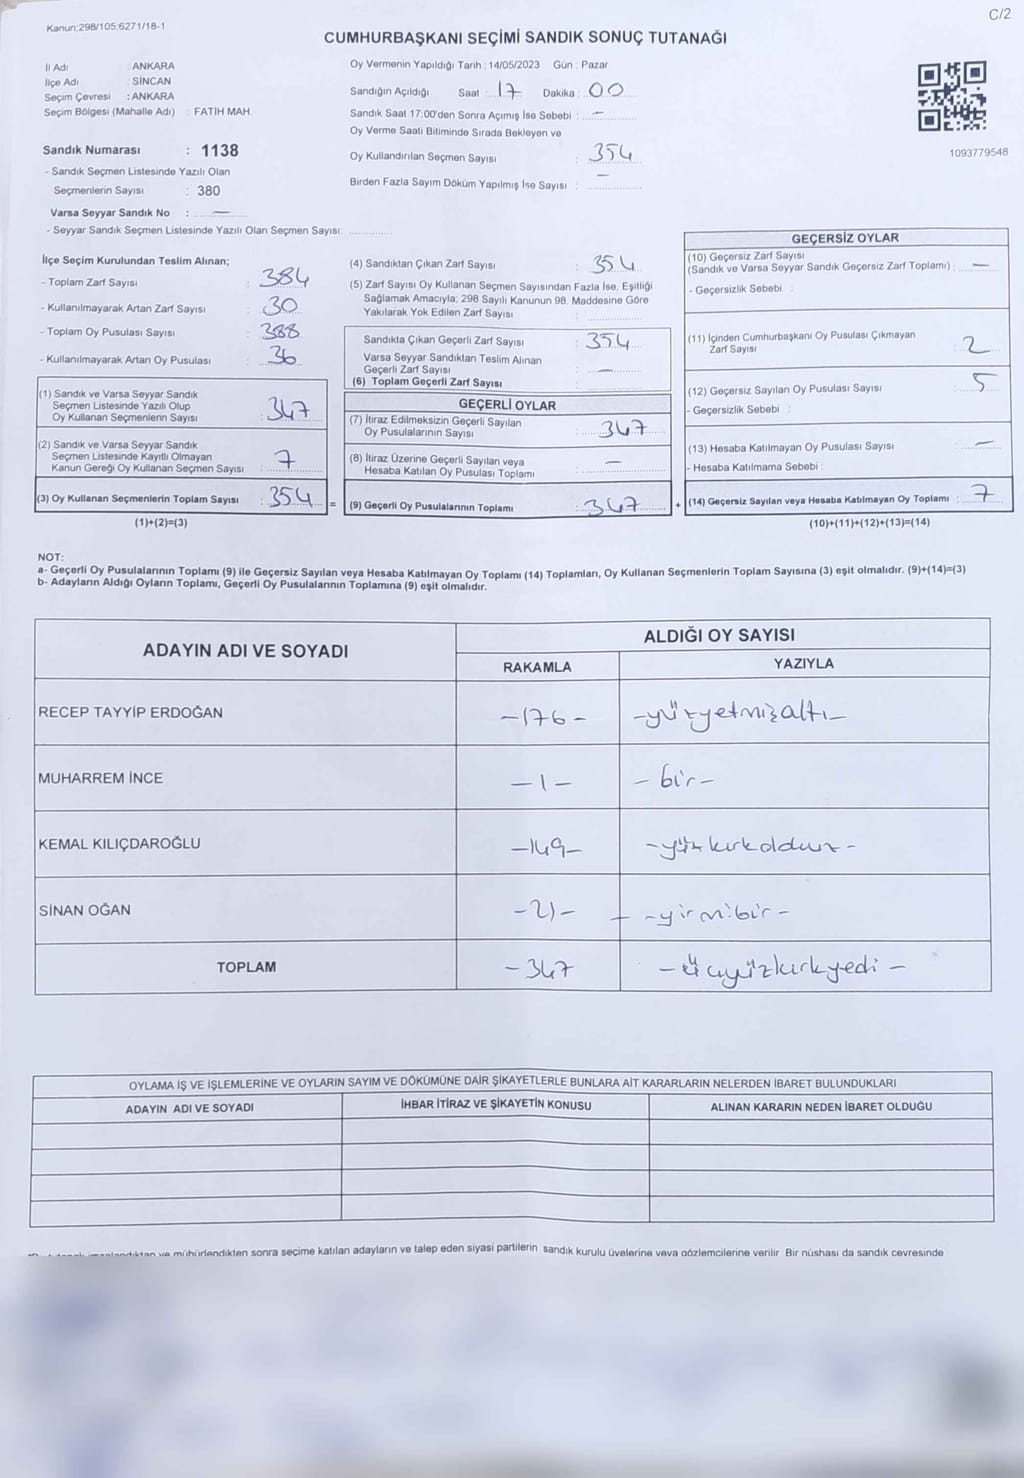 C/2
Kanun;298/105;6271/18-1
CUMHURBAŞKANI SEÇİMİ SANDIK SONUÇ TUTANAĞI
İl Adı : ANKARA
İlçe Adı : SİNCAN
Seçim Çevresi : ANKARA
Seçim Bölgesi (Mahalle Adı) : FATİH MAH.
Sandık Numarası : 1138
- Sandık Seçmen Listesinde Yazılı Olan
Seçmenlerin Sayısı : 380
Varsa Seyyar Sandık No : —
- Seyyar Sandık Seçmen Listesinde Yazılı Olan Seçmen Sayısı:
Oy Vermenin Yapıldığı Tarih : 14/05/2023 Gün : Pazar
Sandığın Açıldığı Saat : 17 Dakika : 00
Sandık Saat 17:00'den Sonra Açımış İse Sebebi : —
Oy Verme Saati Bitiminde Sırada Bekleyen ve
Oy Kullandırılan Seçmen Sayısı : 354
Birden Fazla Sayım Döküm Yapılmış İse Sayısı : —
1093779548
İlçe Seçim Kurulundan Teslim Alınan;
- Toplam Zarf Sayısı : 384
- Kullanılmayarak Artan Zarf Sayısı : 30
- Toplam Oy Pusulası Sayısı : 388
- Kullanılmayarak Artan Oy Pusulası : 36
(1) Sandık ve Varsa Seyyar Sandık
Seçmen Listesinde Yazılı Olup
Oy Kullanan Seçmenlerin Sayısı : 347
(2) Sandık ve Varsa Seyyar Sandık
Seçmen Listesinde Kayıtlı Olmayan
Kanun Gereği Oy Kullanan Seçmen Sayısı : 7
(3) Oy Kullanan Seçmenlerin Toplam Sayısı : 354 =
(1)+(2)=(3)
(4) Sandıktan Çıkan Zarf Sayısı : 354
(5) Zarf Sayısı Oy Kullanan Seçmen Sayısından Fazla İse, Eşitliği
Sağlamak Amacıyla; 298 Sayılı Kanunun 98. Maddesine Göre
Yakılarak Yok Edilen Zarf Sayısı :
Sandıkta Çıkan Geçerli Zarf Sayısı : 354
Varsa Seyyar Sandıktan Teslim Alınan
Geçerli Zarf Sayısı : —
(6) Toplam Geçerli Zarf Sayısı :
GEÇERLİ OYLAR
(7) İtiraz Edilmeksizin Geçerli Sayılan
Oy Pusulalarının Sayısı : 347
(8) İtiraz Üzerine Geçerli Sayılan veya
Hesaba Katılan Oy Pusulası Toplamı : —
(9) Geçerli Oy Pusulalarının Toplamı : 347 +
GEÇERSİZ OYLAR
(10) Geçersiz Zarf Sayısı
(Sandık ve Varsa Seyyar Sandık Geçersiz Zarf Toplamı) : —
- Geçersizlik Sebebi :
(11) İçinden Cumhurbaşkanı Oy Pusulası Çıkmayan
Zarf Sayısı : 2
(12) Geçersiz Sayılan Oy Pusulası Sayısı : 5
- Geçersizlik Sebebi :
(13) Hesaba Katılmayan Oy Pusulası Sayısı : —
- Hesaba Katılmama Sebebi :
(14) Geçersiz Sayılan veya Hesaba Katılmayan Oy Toplamı : 7
(10)+(11)+(12)+(13)=(14)
NOT:
a- Geçerli Oy Pusulalarının Toplamı (9) ile Geçersiz Sayılan veya Hesaba Katılmayan Oy Toplamı (14) Toplamları, Oy Kullanan Seçmenlerin Toplam Sayısına (3) eşit olmalıdır. (9)+(14)=(3)
b- Adayların Aldığı Oyların Toplamı, Geçerli Oy Pusulalarının Toplamına (9) eşit olmalıdır.
ADAYIN ADI VE SOYADI ALDIĞI OY SAYISI
RAKAMLA YAZIYLA
RECEP TAYYİP ERDOĞAN -176- -yüzyetmişaltı-
MUHARREM İNCE -1- -bir-
KEMAL KILIÇDAROĞLU -149- -yüzkırkdokuz-
SİNAN OĞAN -21- -yirmibir-
TOPLAM -347 -üçyüzkırkyedi-
OYLAMA İŞ VE İŞLEMLERİNE VE OYLARIN SAYIM VE DÖKÜMÜNE DAİR ŞİKAYETLERLE BUNLARA AİT KARARLARIN NELERDEN İBARET BULUNDUKLARI
ADAYIN ADI VE SOYADI İHBAR İTİRAZ VE ŞİKAYETİN KONUSU ALINAN KARARIN NEDEN İBARET OLDUĞU
imzalandıktan ve mühürlendikten sonra seçime katılan adayların ve talep eden siyasi partilerin sandık kurulu üyelerine veya gözlemcilerine verilir. Bir nüshası da sandık çevresinde